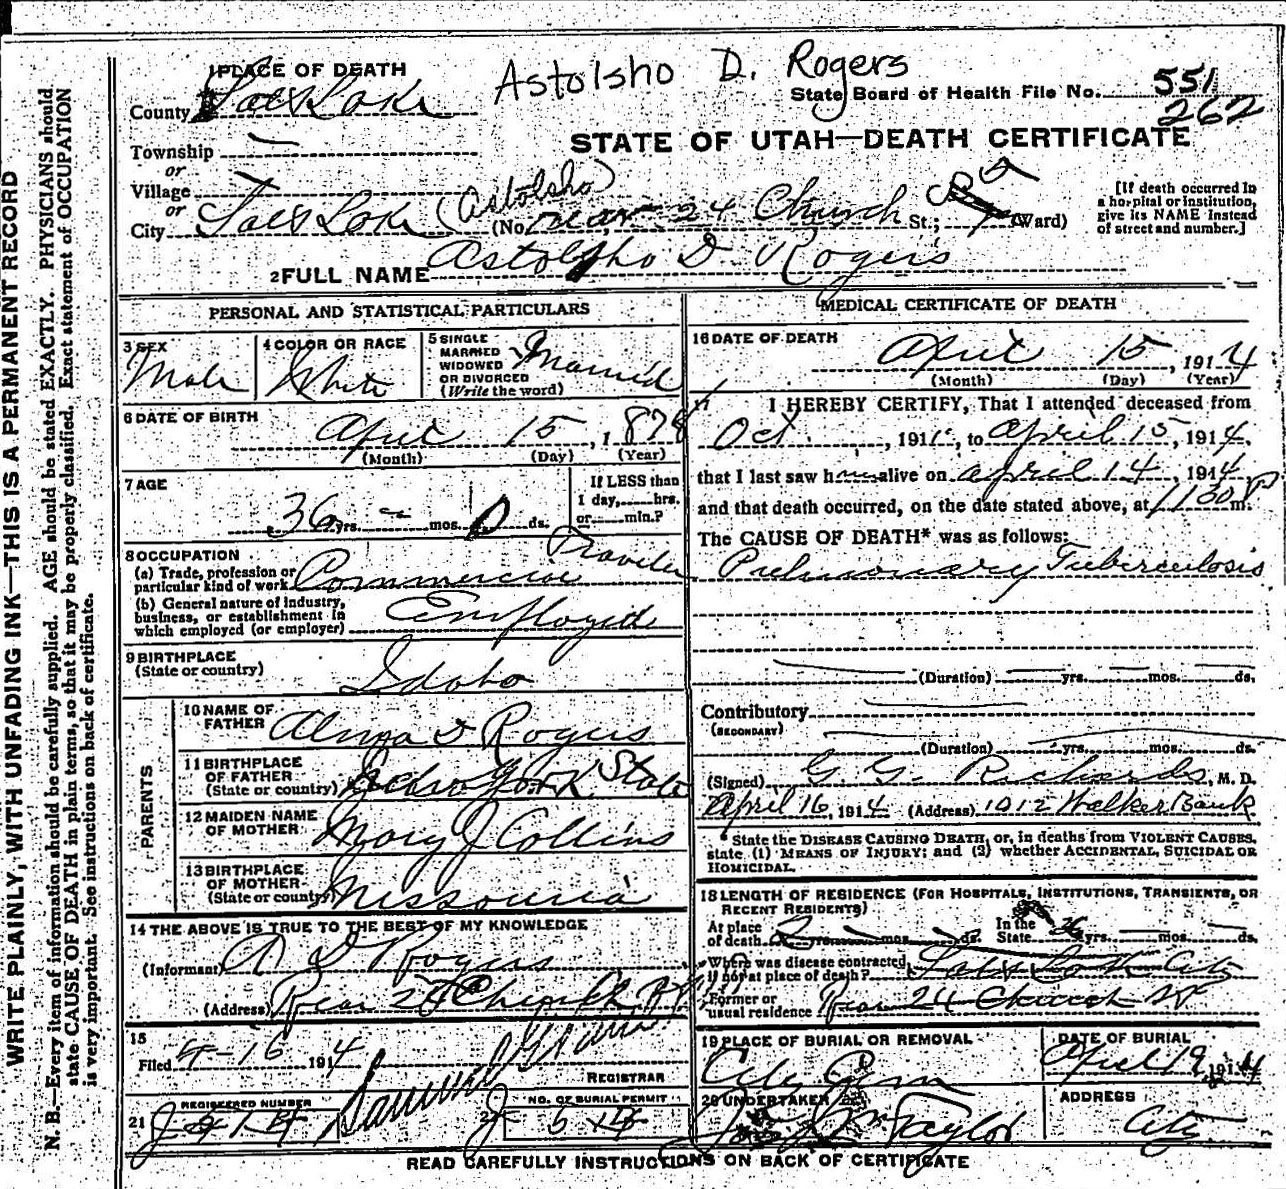 WRITE PLAINLY, WITH UNFADING INK—THIS IS A PERMANENT RECORD
N. B.—Every item of information should be carefully supplied. AGE should be stated EXACTLY. PHYSICIANS should
state CAUSE OF DEATH in plain terms, so that it may be properly classified. Exact statement of OCCUPATION
is very important. See instructions on back of certificate.
Astolsho D. Rogers
1 PLACE OF DEATH
County Salt Lake
State Board of Health File No. 551
262
STATE OF UTAH—DEATH CERTIFICATE
Township
or
Village
or
City Salt Lake (Astolsho) (No. rear 24 Church St.; Ward)
[If death occurred in
a hospital or institution,
give its NAME instead
of street and number.]
2 FULL NAME Astolsho D. Rogers
PERSONAL AND STATISTICAL PARTICULARS
3 SEX
Male
4 COLOR OR RACE
White
5 SINGLE
MARRIED
WIDOWED
OR DIVORCED
(Write the word)
Married
6 DATE OF BIRTH
April 15, 1878
(Month) (Day) (Year)
7 AGE
36 yrs. – mos. 0 ds.
If LESS than
1 day,......hrs.
or......min.?
8 OCCUPATION
(a) Trade, profession or
particular kind of work Commercial Traveler
(b) General nature of industry,
business, or establishment in
which employed (or employer) Employed
9 BIRTHPLACE
(State or country)
Idaho
PARENTS
10 NAME OF
FATHER Alma D Rogers
11 BIRTHPLACE
OF FATHER
(State or country) New York State
12 MAIDEN NAME
OF MOTHER Mary J Collins
13 BIRTHPLACE
OF MOTHER
(State or county) Missouri
14 THE ABOVE IS TRUE TO THE BEST OF MY KNOWLEDGE
(Informant) A D Rogers
(Address) Rear 24 Church St
15
Filed 4-16 1914
REGISTRAR
21 REGISTERED NUMBER
NO. OF BURIAL PERMIT
MEDICAL CERTIFICATE OF DEATH
16 DATE OF DEATH
April 15, 1914
(Month) (Day) (Year)
17 I HEREBY CERTIFY, That I attended deceased from
Oct , 191 , to April 15, 1914,
that I last saw h alive on April 14, 1914,
and that death occurred, on the date stated above, at 1130 P m.
The CAUSE OF DEATH* was as follows:
Pulmonary Tuberculosis
(Duration) yrs. mos. ds.
Contributory
(SECONDARY)
(Duration) yrs. mos. ds.
(Signed) G. G. Richards, M. D.
April 16, 1914 (Address) 1012 Walker Bank
* State the DISEASE CAUSING DEATH, or, in deaths from VIOLENT CAUSES,
state (1) MEANS OF INJURY; and (2) whether ACCIDENTAL, SUICIDAL OR
HOMICIDAL.
18 LENGTH OF RESIDENCE (FOR HOSPITALS, INSTITUTIONS, TRANSIENTS, OR
RECENT RESIDENTS)
At place
of death yrs. mos. ds.
In the
State 36 yrs. mos. ds.
Where was disease contracted,
if not at place of death? Salt Lake City
Former or
usual residence Rear 24 Church St
19 PLACE OF BURIAL OR REMOVAL
City Cem
DATE OF BURIAL
April 19, 1914
20 UNDERTAKER
Taylor
ADDRESS
City
READ CAREFULLY INSTRUCTIONS ON BACK OF CERTIFICATE